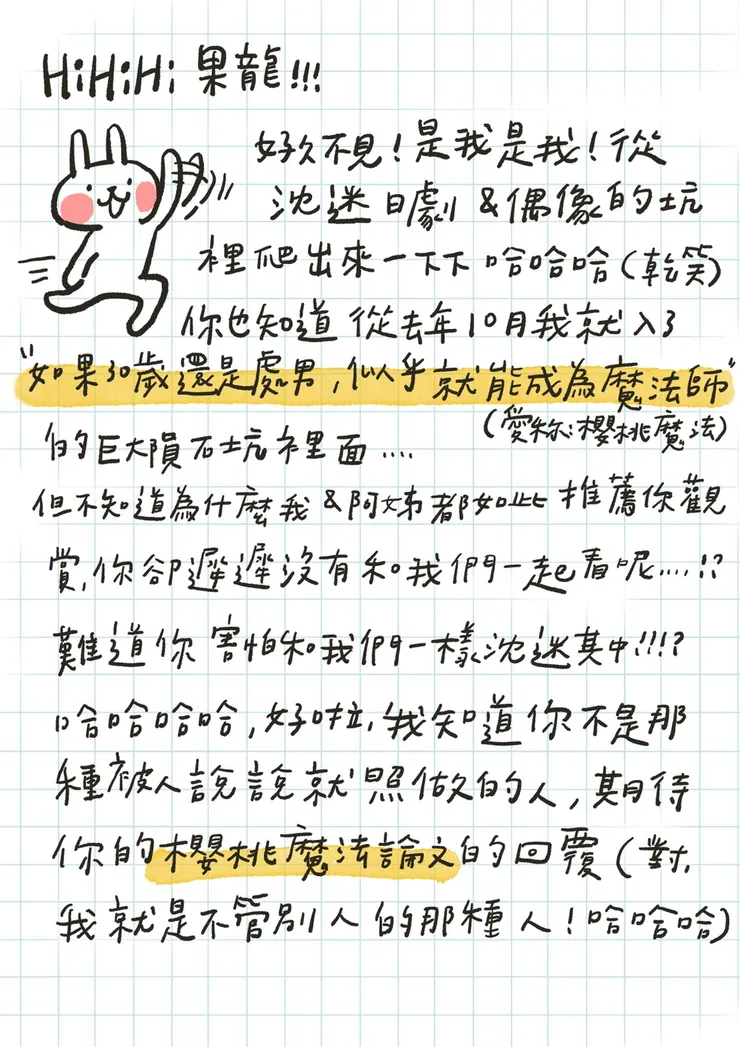 HiHiHi 果龍!!!
好久不見!是我是我!從
沈迷日劇&偶像的坑
裡爬出來一下下 哈哈哈(乾笑)
你也知道 從去年10月我就入了
"如果30歲還是處男,似乎就能成為魔法師"
(愛稱:櫻桃魔法)
的巨大隕石坑裡面....
但不知道為什麼我&阿姊都如此推薦你觀
賞,你卻遲遲沒有和我們一起看呢....!?
難道你害怕和我們一樣沈迷其中!!!?
哈哈哈哈,好啦,我知道你不是那
種被人說說就照做的人,期待
你的櫻桃魔法論文的回覆(對,
我就是不管別人的那種人!哈哈哈)